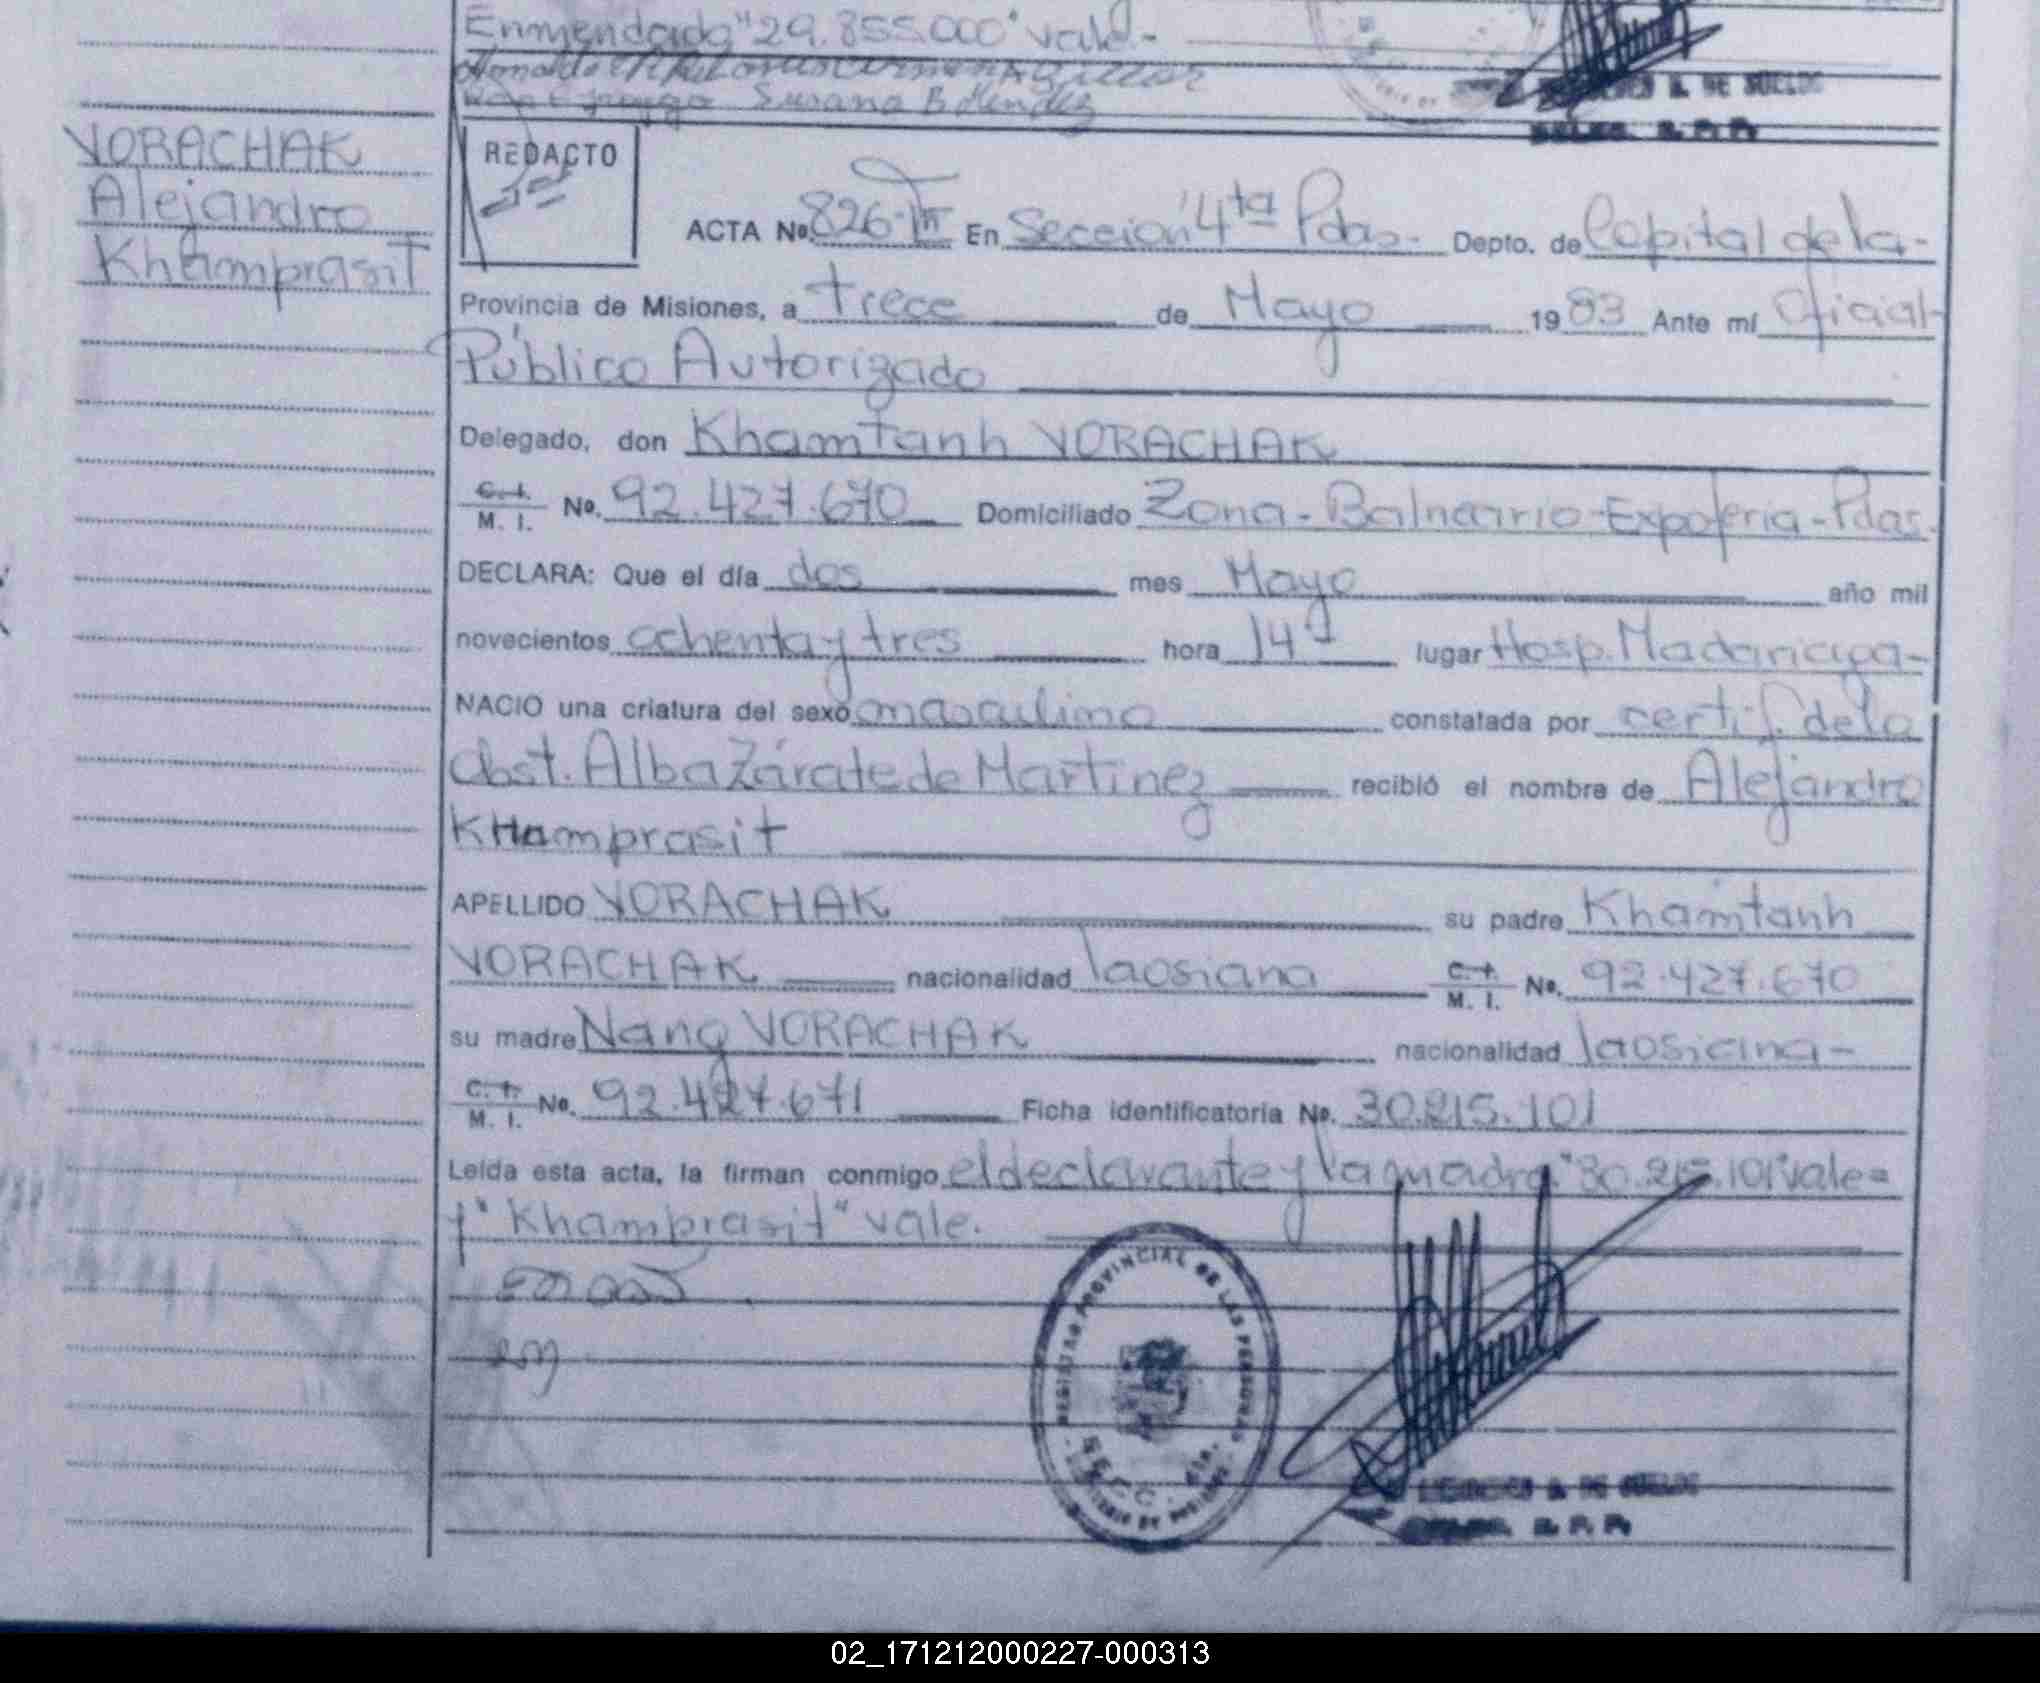 Enmendado "29.855.000" vale.-
Susana B Mendez
VORACHAK
Alejandro
Khamprasit
REDACTO
ACTA No. 826-T III En Sección 4ta Pdas.- Depto. de Capital de la-
Provincia de Misiones, a trece de Mayo 1983 Ante mí Oficial-
Público Autorizado
Delegado, don Khamtanh VORACHAK
C. I. M. I. No. 92.427.670 Domiciliado Zona-Balneario-Expoferia-Pdas.
DECLARA: Que el día dos mes Mayo año mil
novecientos ochenta y tres hora 14 lugar Hosp. Madariaga-
NACIO una criatura del sexo masculino constatada por certif. de la
Obst. Alba Zárate de Martinez recibió el nombre de Alejandro
Khamprasit
APELLIDO VORACHAK su padre Khamtanh
VORACHAK nacionalidad laosiana C. I. M. I. No. 92.427.670
su madre Nang VORACHAK nacionalidad laosiana-
C. I. M. I. No. 92.427.671 Ficha identificatoria No. 30.215.101
Leída esta acta, la firman conmigo el declarante y la madre. "30.215.101" vale=
y "Khamprasit" vale.
REGISTRO PROVINCIAL DE LAS PERSONAS
SECC. 4ta.
02_171212000227-000313